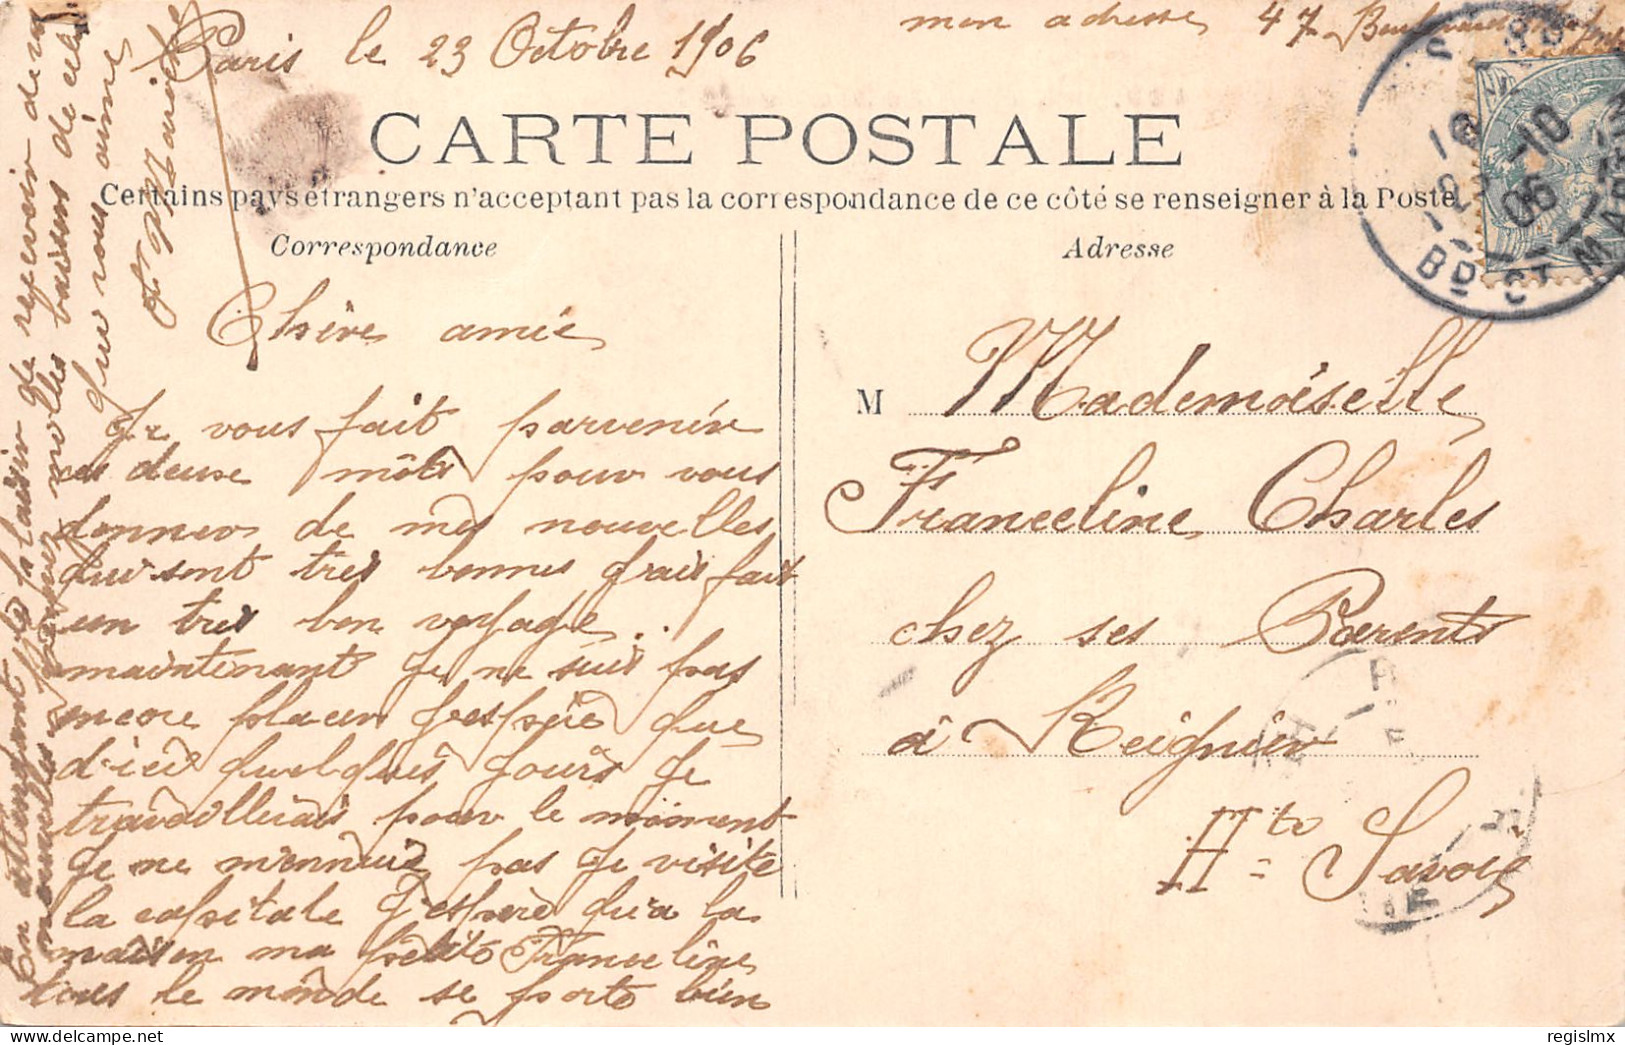 Paris le 23 Octobre 1906
mon adresse 47 Boulevard
CARTE POSTALE
Certains pays étrangers n'acceptent pas la correspondance de ce côté se renseigner à la Poste
Correspondance
Adresse
Chère amie
Je vous fait parvenir
ces deuse môts pour vous
donner de mes nouvelles
qui sont très bonnes j'rais fait
un très bon voyage
maintenant je ne suis pas
encore placer j'espère que
d'ici quelques jours je
travaillerais pour le moment
je ne m'ennuie pas je visite
la capitale j'espère qu'a la
maison ma petite Franceline
tous le monde se porte bien
En attendant le plaisir de recevoir de vos
nouvelles recever milles baisers de celui
que vous aime
M
Mademoiselle
Franceline Charles
chez ses Parents
à Reignier
Hte Savoie
10
-10
06
BD ST MARTIN
regislmx